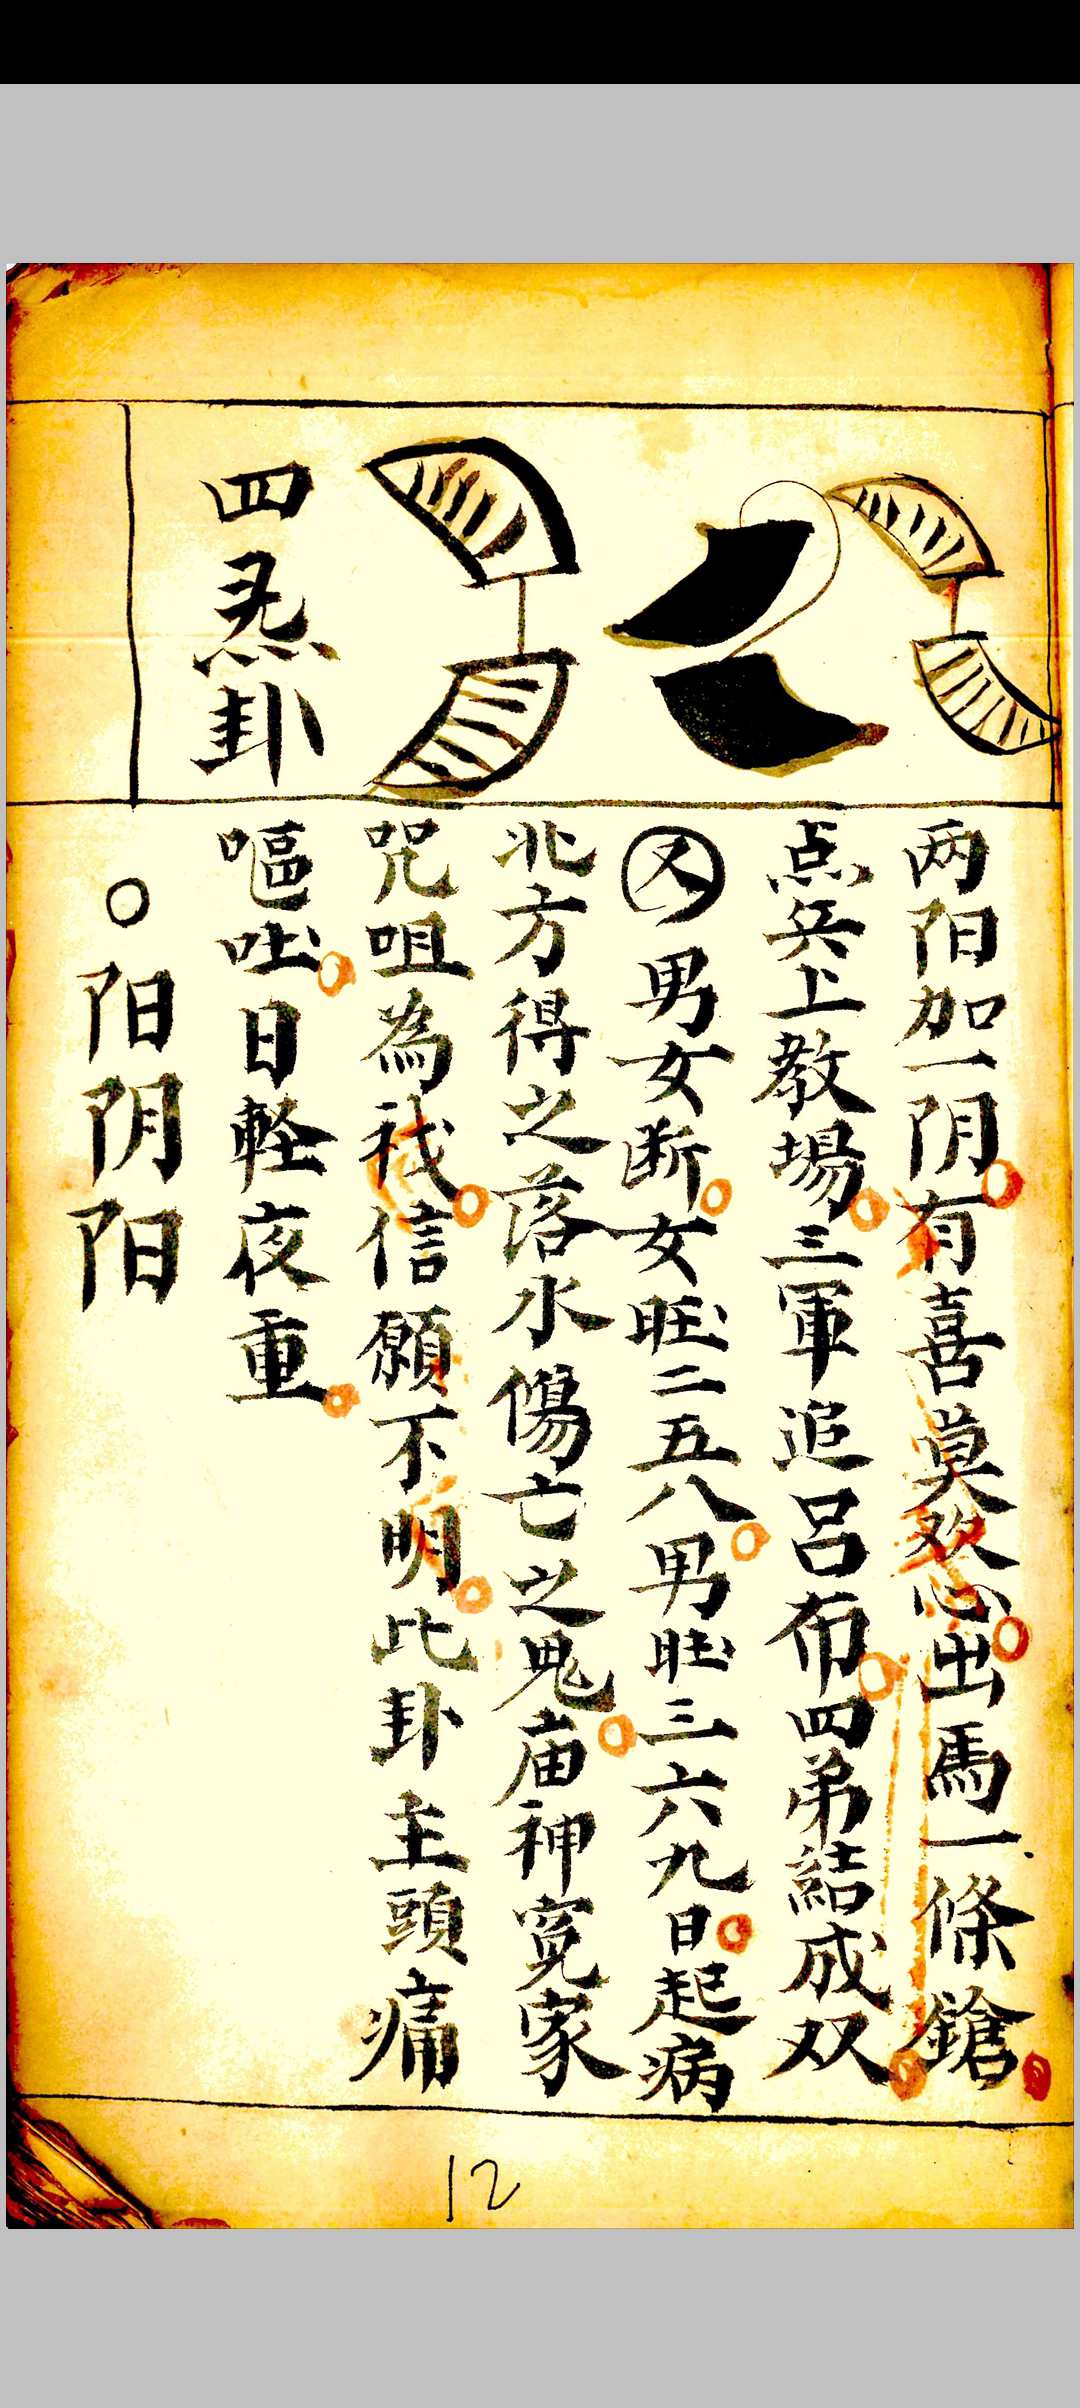 四炁卦
两阳加一阴有喜莫欢心出馬一條鎗
点兵上教場三軍追呂布四弟結成双
又男女断女旺二五八男旺三六九日起病
北方得之落水傷亡之鬼庙神寃家
咒咀為祅信願不明此卦主頭痛
嘔吐日輕夜重
○阳阴阳
12